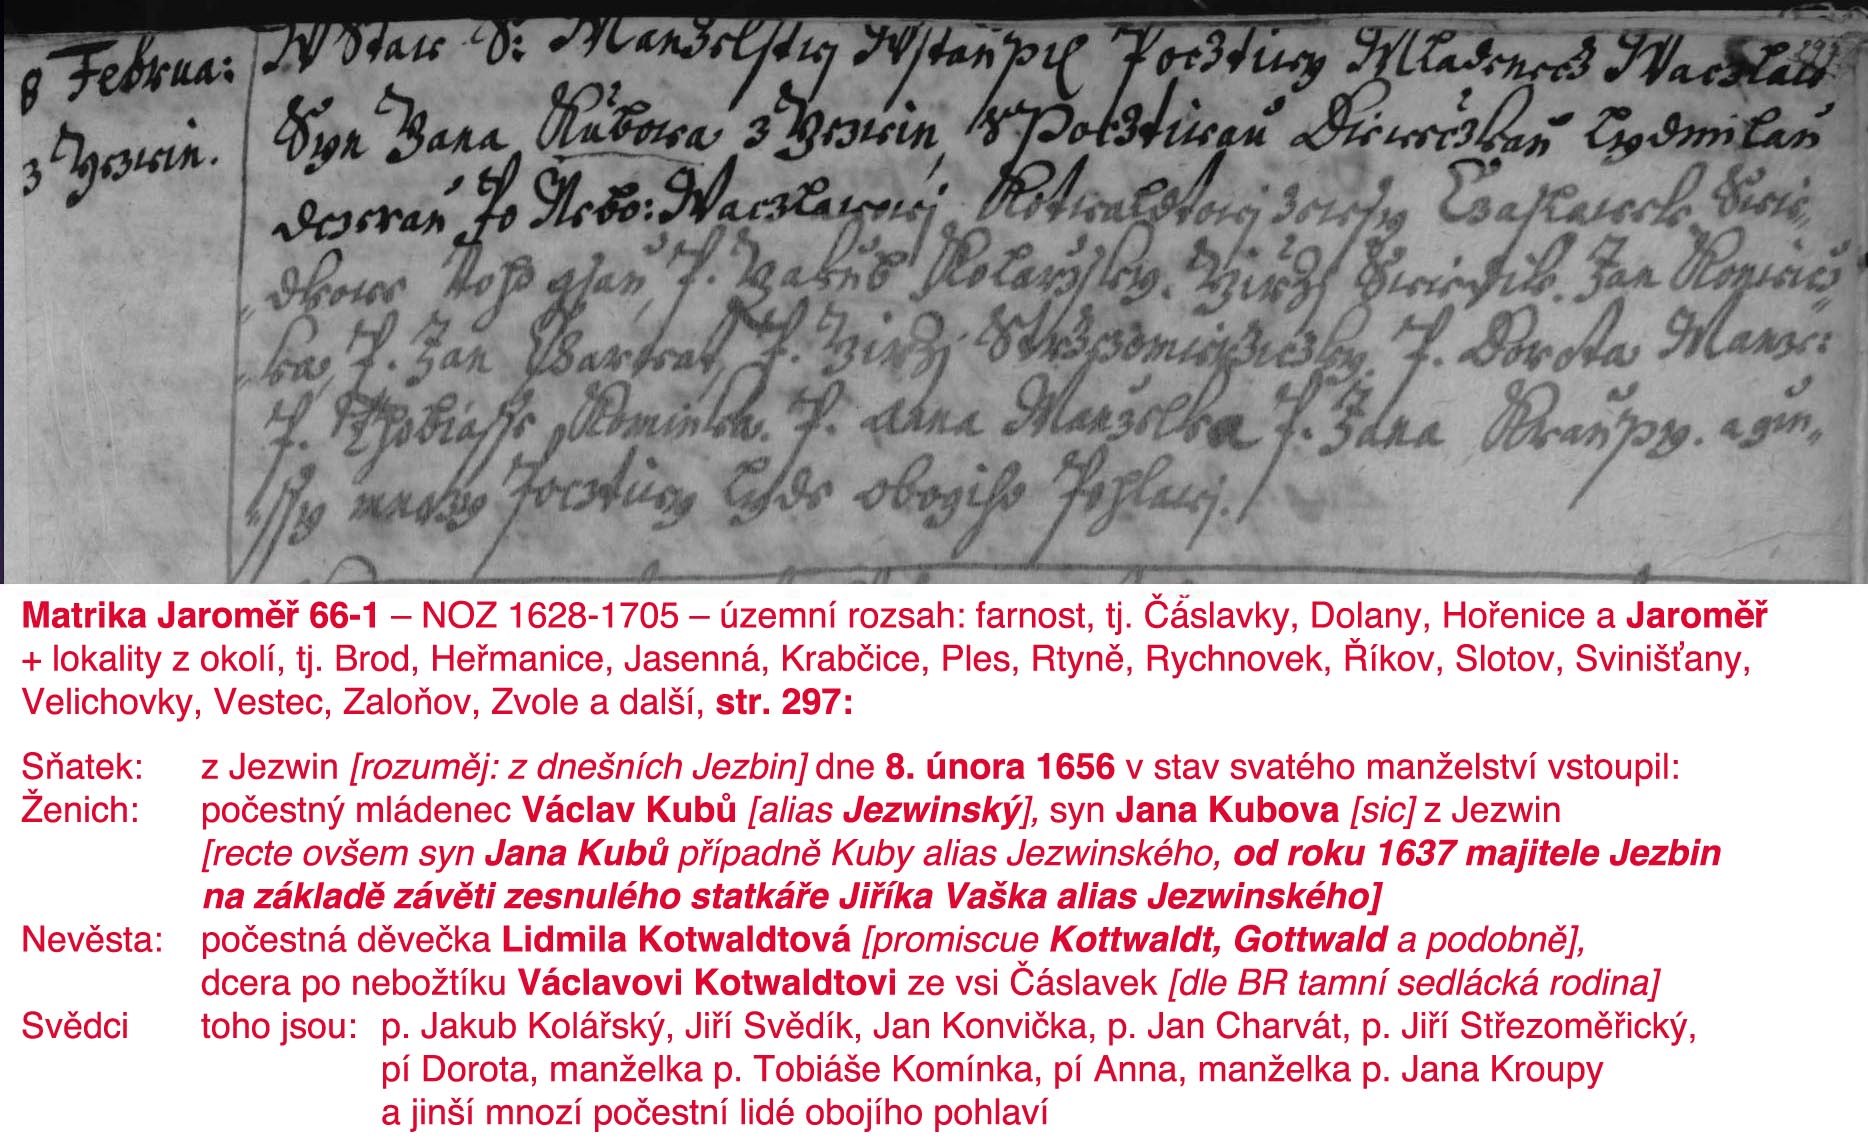 297
8 Februa: W Staw S: Manželstwj Wstaupil Pocztiwy Mladenecz Waczlaw
z Yezwin. Syn Yana Kubowa z Yezwin, s Pocztiwau Diweczkau Lydmilau
dczerau po Nebo: Waczlawowj Kotwaldtowj zewsy Czaslawek Swie„
„dkowe toho gsau, P. Yakub Kolarzsky. Yirzj Swiedik. Jan Konwicz„
„ka, P. Jan Charwat, P. Yirzj Strzezomierziczky. P. Dorota Manže:
P. Thobiasse Kominka. P. Anna Manželka P. Jana Kraupy. a gin„
„ssy mnozy Pocztiwy Lyde obogiho Pohlawj.
Matrika Jaroměř 66-1 – NOZ 1628-1705 – územní rozsah: farnost, tj. Čáslavky, Dolany, Hořenice a Jaroměř
+ lokality z okolí, tj. Brod, Heřmanice, Jasenná, Krabčice, Ples, Rtyně, Rychnovek, Říkov, Slotov, Svinišťany,
Velichovky, Vestec, Zaloňov, Zvole a další, str. 297:
Sňatek: z Jezwin [rozuměj: z dnešních Jezbin] dne 8. února 1656 v stav svatého manželství vstoupil:
Ženich: počestný mládenec Václav Kubů [alias Jezwinský], syn Jana Kubova [sic] z Jezwin
[recte ovšem syn Jana Kubů případně Kuby alias Jezwinského, od roku 1637 majitele Jezbin
na základě závěti zesnulého statkáře Jiříka Vaška alias Jezwinského]
Nevěsta: počestná děvečka Lidmila Kotwaldtová [promiscue Kottwaldt, Gottwald a podobně],
dcera po nebožtíku Václavovi Kotwaldtovi ze vsi Čáslavek [dle BR tamní sedlácká rodina]
Svědci toho jsou: p. Jakub Kolářský, Jiří Svědík, Jan Konvička, p. Jan Charvát, p. Jiří Střezoměřický,
pí Dorota, manželka p. Tobiáše Komínka, pí Anna, manželka p. Jana Kroupy
a jinší mnozí počestní lidé obojího pohlaví